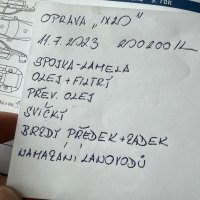 OPRAVA „iX20"
11.7.2023 200200 KM
SPOJKA-LAMELA
OLEJ+FILTRY
PŘEV. OLEJ
SVÍČKY
BRZDY PŘEDEK+ZADEK
NAMAZÁNÍ LANOVODŮ